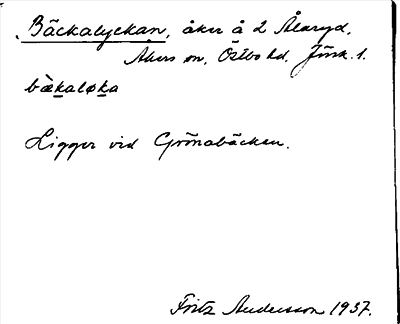 Bäckalyckan, åker å 2 Ålaryd.
Åkers sn, Östbo hd, Jönk. l.
bæ̀kaløka
Ligger vid Grönabäcken.
Fritz Andersson 1937.